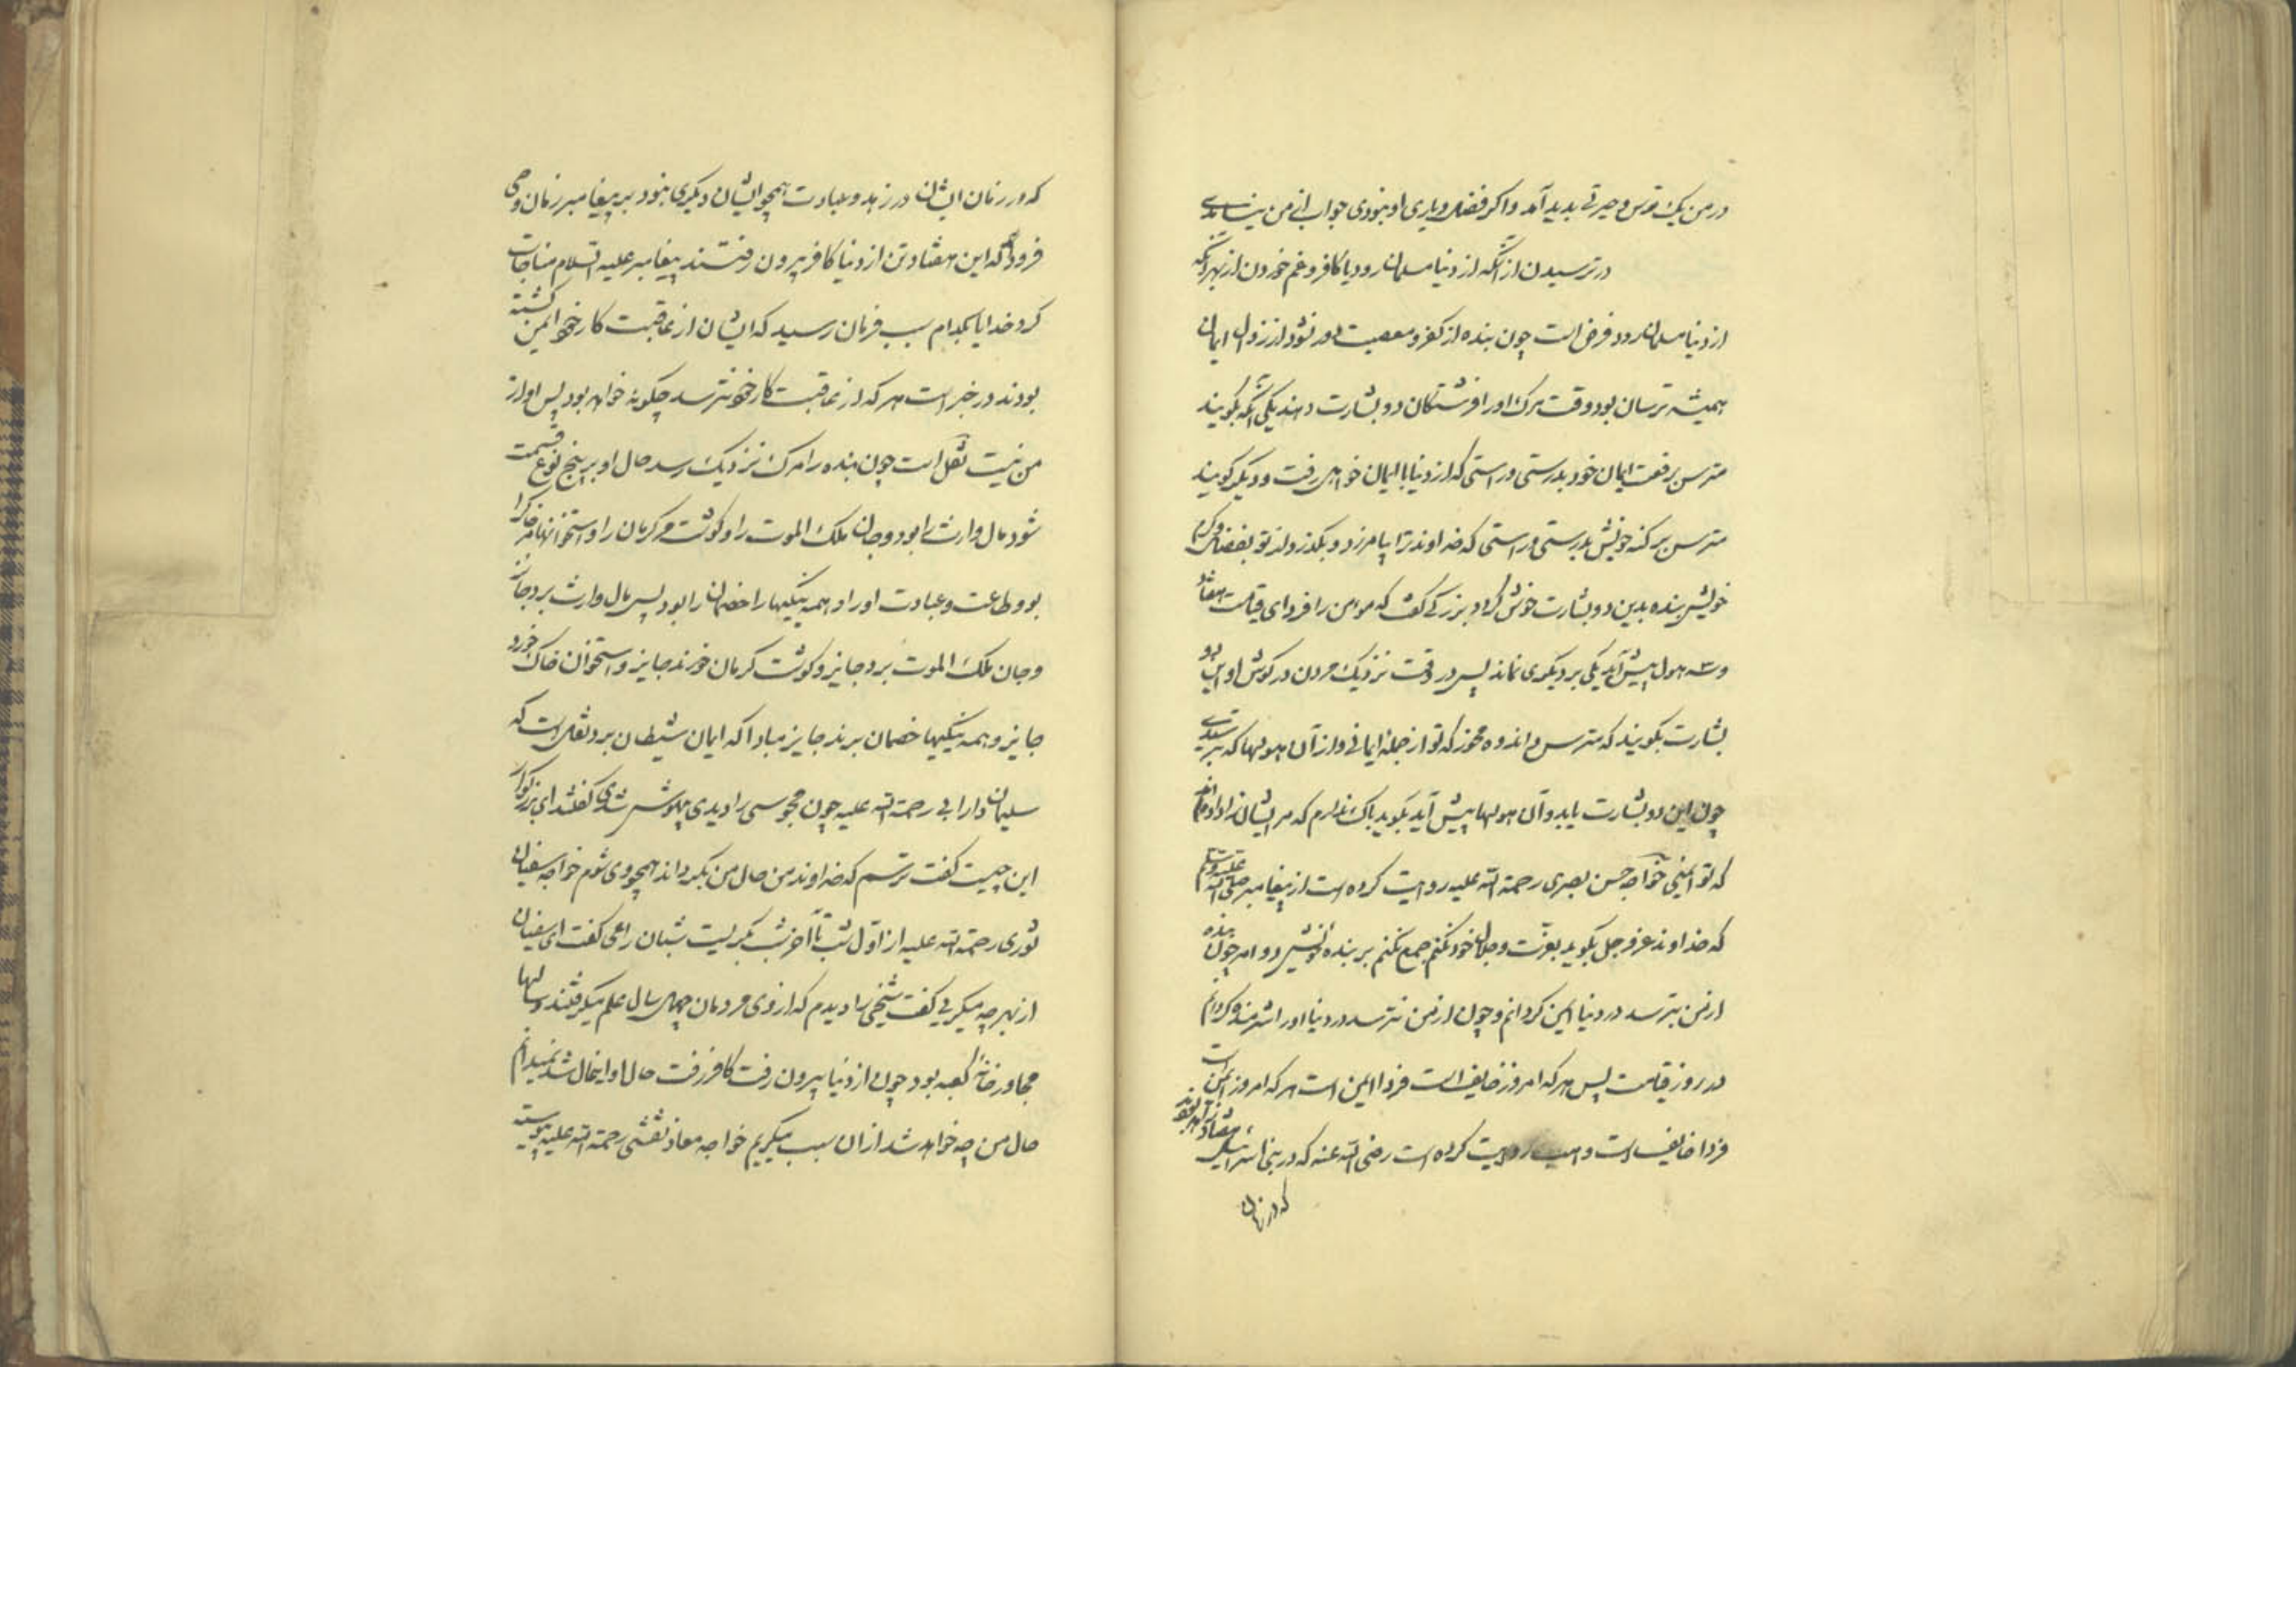 در من یک ترس و حیرتی بدید آمد و اکر فضل و یاری او نبودی جواب از من نیامدی
در ترسیدن از آنکه از دنیا مسلمان رود یا کافر و غم خوردن از بهر آنکه
از دنیا مسلمان رود فرض است چون بنده از کفر و معصیت دور شود از زوال ایمان
همیشه ترسان بود وقت مرک اورا فرشتکان دو بشارت دهند یکی آنکه بکویند
مترس برفعت ایمان خود بدرستی و راستی که از دنیا با ایمان خواهی رفت و دیکر کویند
مترس بر کنه خویش بدرستی و راستی که خداوند ترا بیامرزد و بکذرد از تو بفضل و کرم
خویش بنده بدین دو بشارت خوش کردد بزرکی کفت که مومن را فردای قیامت هفتاد
و سه هول پیش آید یکی بر دیکری نماند پس در وقت نزدیک مردن در کوش او این دو
بشارت بکویند که مترس و اندوه مخور که تو از جمله ایمانی و از آن هولها که بترسیدی
چون این دو بشارت یابد و آن هولها پیش آید بکوید باک ندارم که مر ایشان را داده‌اند
که تو ایمنی خواجه حسن بصری رحمة الله علیه روایت کرده است از پیغامبر صلی الله علیه و سلم
که خداوند عز و جل بکوید بعزت و جلال خود نکنم جمع نکنم بر بنده خویش دو امر چون بنده
از من بترسد در دنیا ایمن کردانم و چون از من نترسد در دنیا اورا شرمنده کردانم
در روز قیامت پس هر که امروز خایف است فردا ایمن است هر که امروز ایمن است
فردا خایف است و روایت کرده است رضی الله عنه که در بنی اسرائیل هفتاد زاهد بودند
که در زمان
که در زمان ایشان در زهد و عبادت همچو ایشان دیکری نبود بر پیغامبر زمان وحی
فرود آمد که این هفتاد تن از دنیا کافر بیرون رفتند پیغامبر علیه السلام مناجات
کرد خدایا بکدام سبب فرمان رسید که ایشان از عاقبت کار خود ایمن کشته
بودند در خبر است هر که از عاقبت کار خود نترسد چکونه خواهد بود پس او از
من نیست نقل است چون بنده را مرک نزدیک رسد حال او بر پنج نوع قسمت
شود مال وارث را بود و جان ملک الموت را و کوشت مر کرمان را و استخوانها مر خاک را
بود و طاعت و عبادت اورا و همه نیکیها را خصمان را بود پس مال وارث برد جایز
و جان ملک الموت برد جایز و کوشت کرمان خورند جایز و استخوان خاک خورد
جایز و همه نیکیها خصمان برند جایز مبادا که ایمان شیطان برد نقل است که
سلیمان دارابی رحمة الله علیه چون مجوسی را دیدی بیهوش شدی کفتند ای بزرکوار
این چیست کفت ترسم که خداوند من حال من بکرداند همچو وی شوم خواجه سفیان
ثوری رحمة الله علیه از اول شب تا آخر شب بکریست شبان راعی کفت ای سفیان
از بهر چه میکریی کفت شیخی را دیدم که از وی مردمان چهل سال علم میکرفتند و سالها
مجاور خانه کعبه بود چون از دنیا بیرون رفت کافر رفت حال او اینحال شد نمیدانم
حال من چه خواهد شد از ان سبب میکریم خواجه معاذ نفسی رحمة الله علیه پیوسته